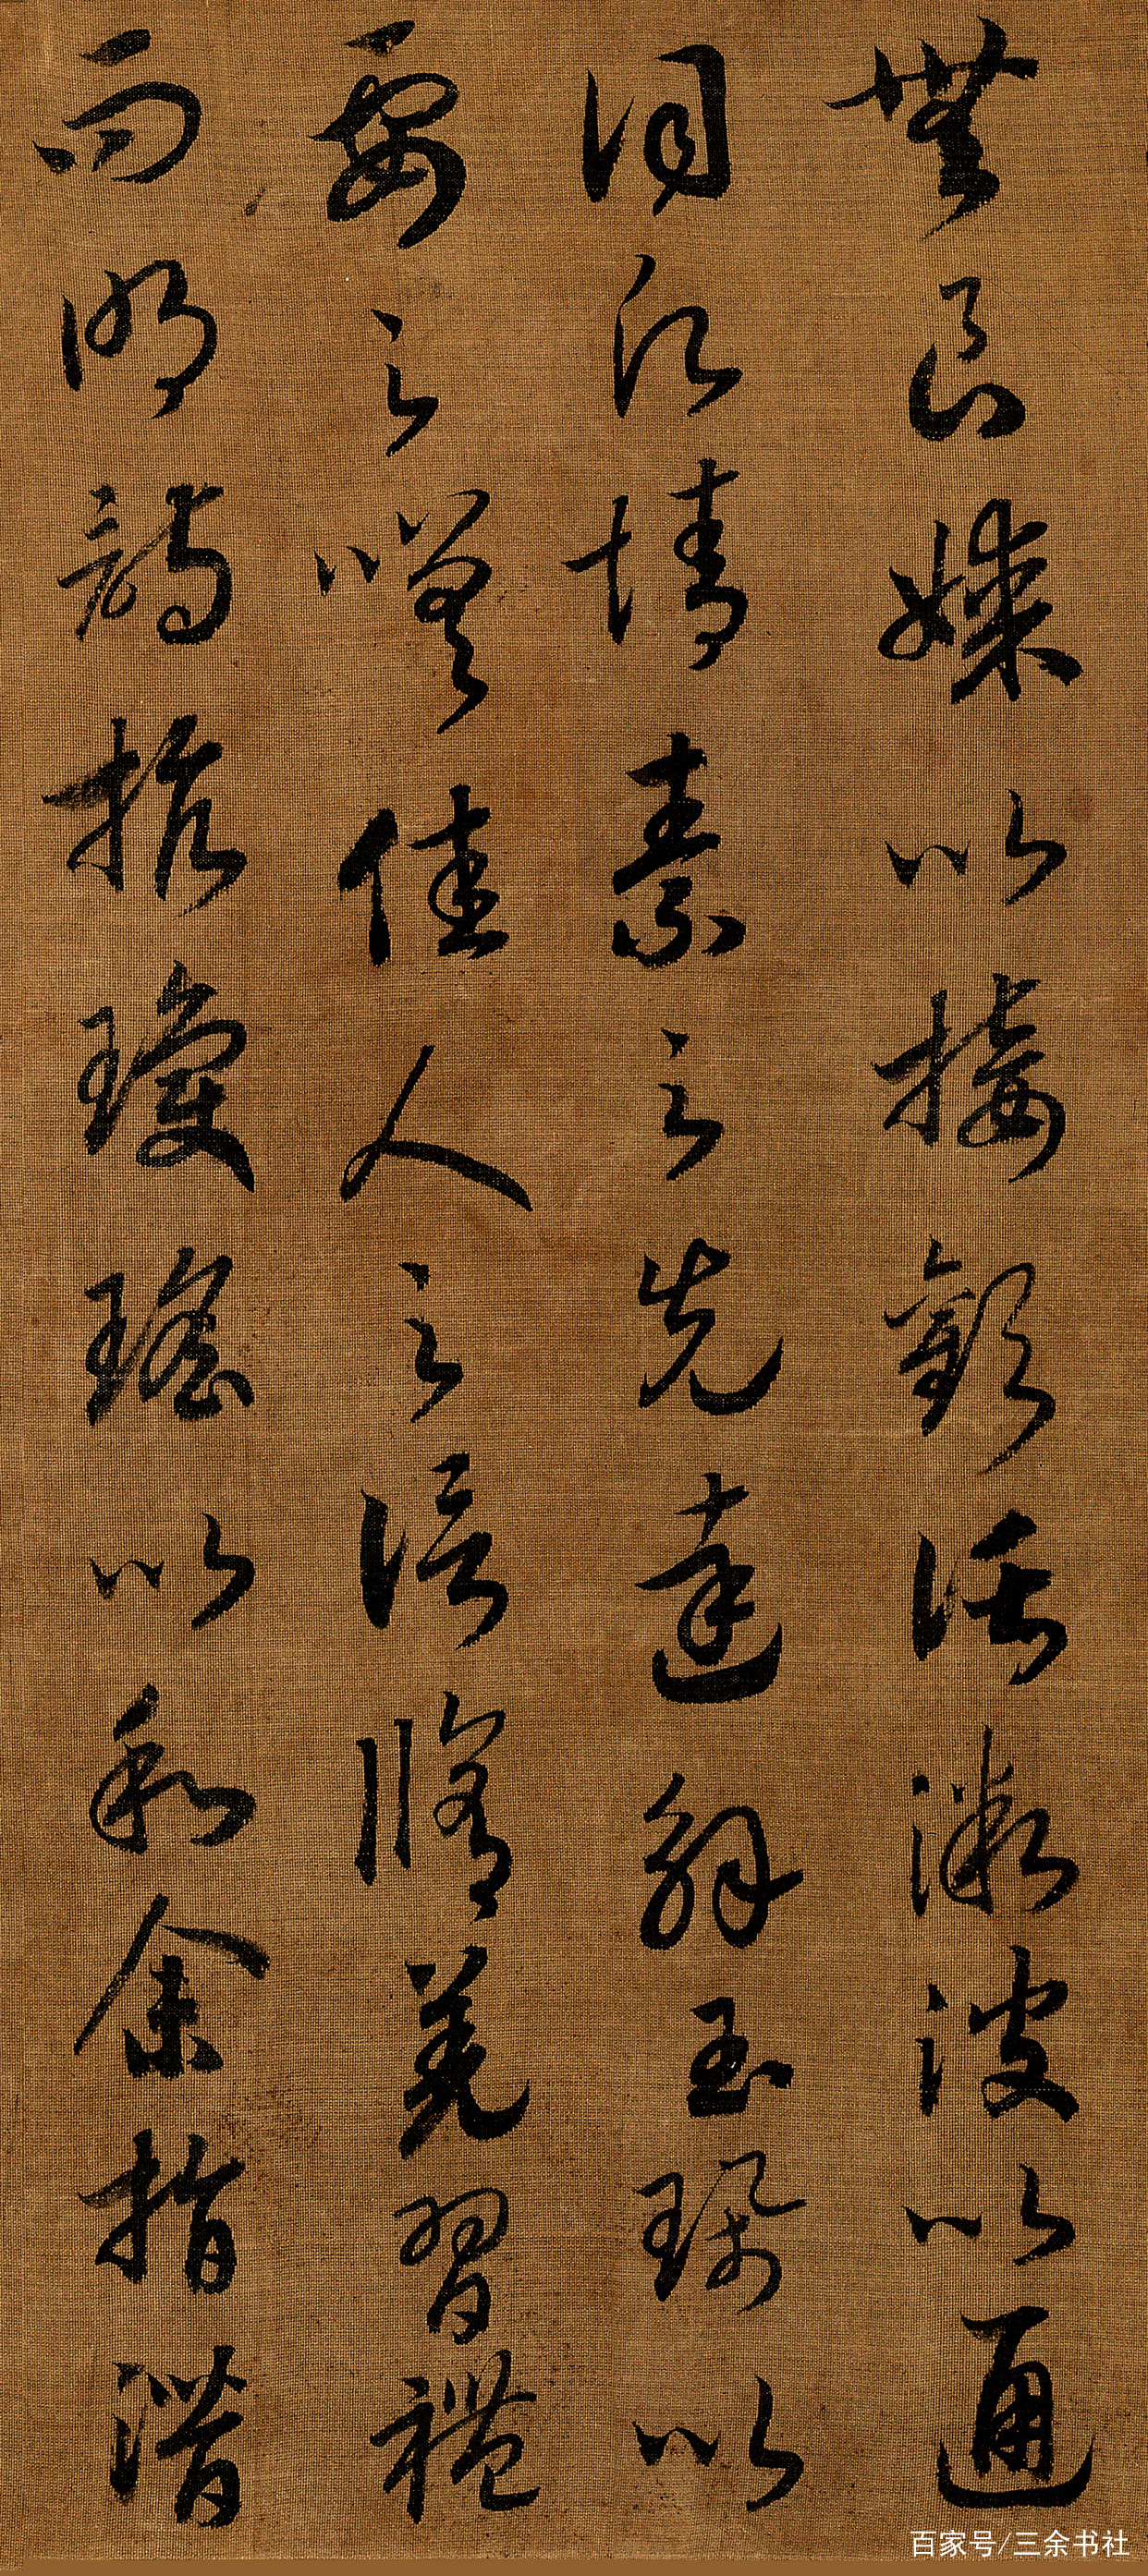 無良媒以接歡托微波以通
詞願誠素之先達解玉珮以
要之嗟佳人之信脩羌習禮
而明詩抗瓊珶以和余指潛
百家号/三余书社